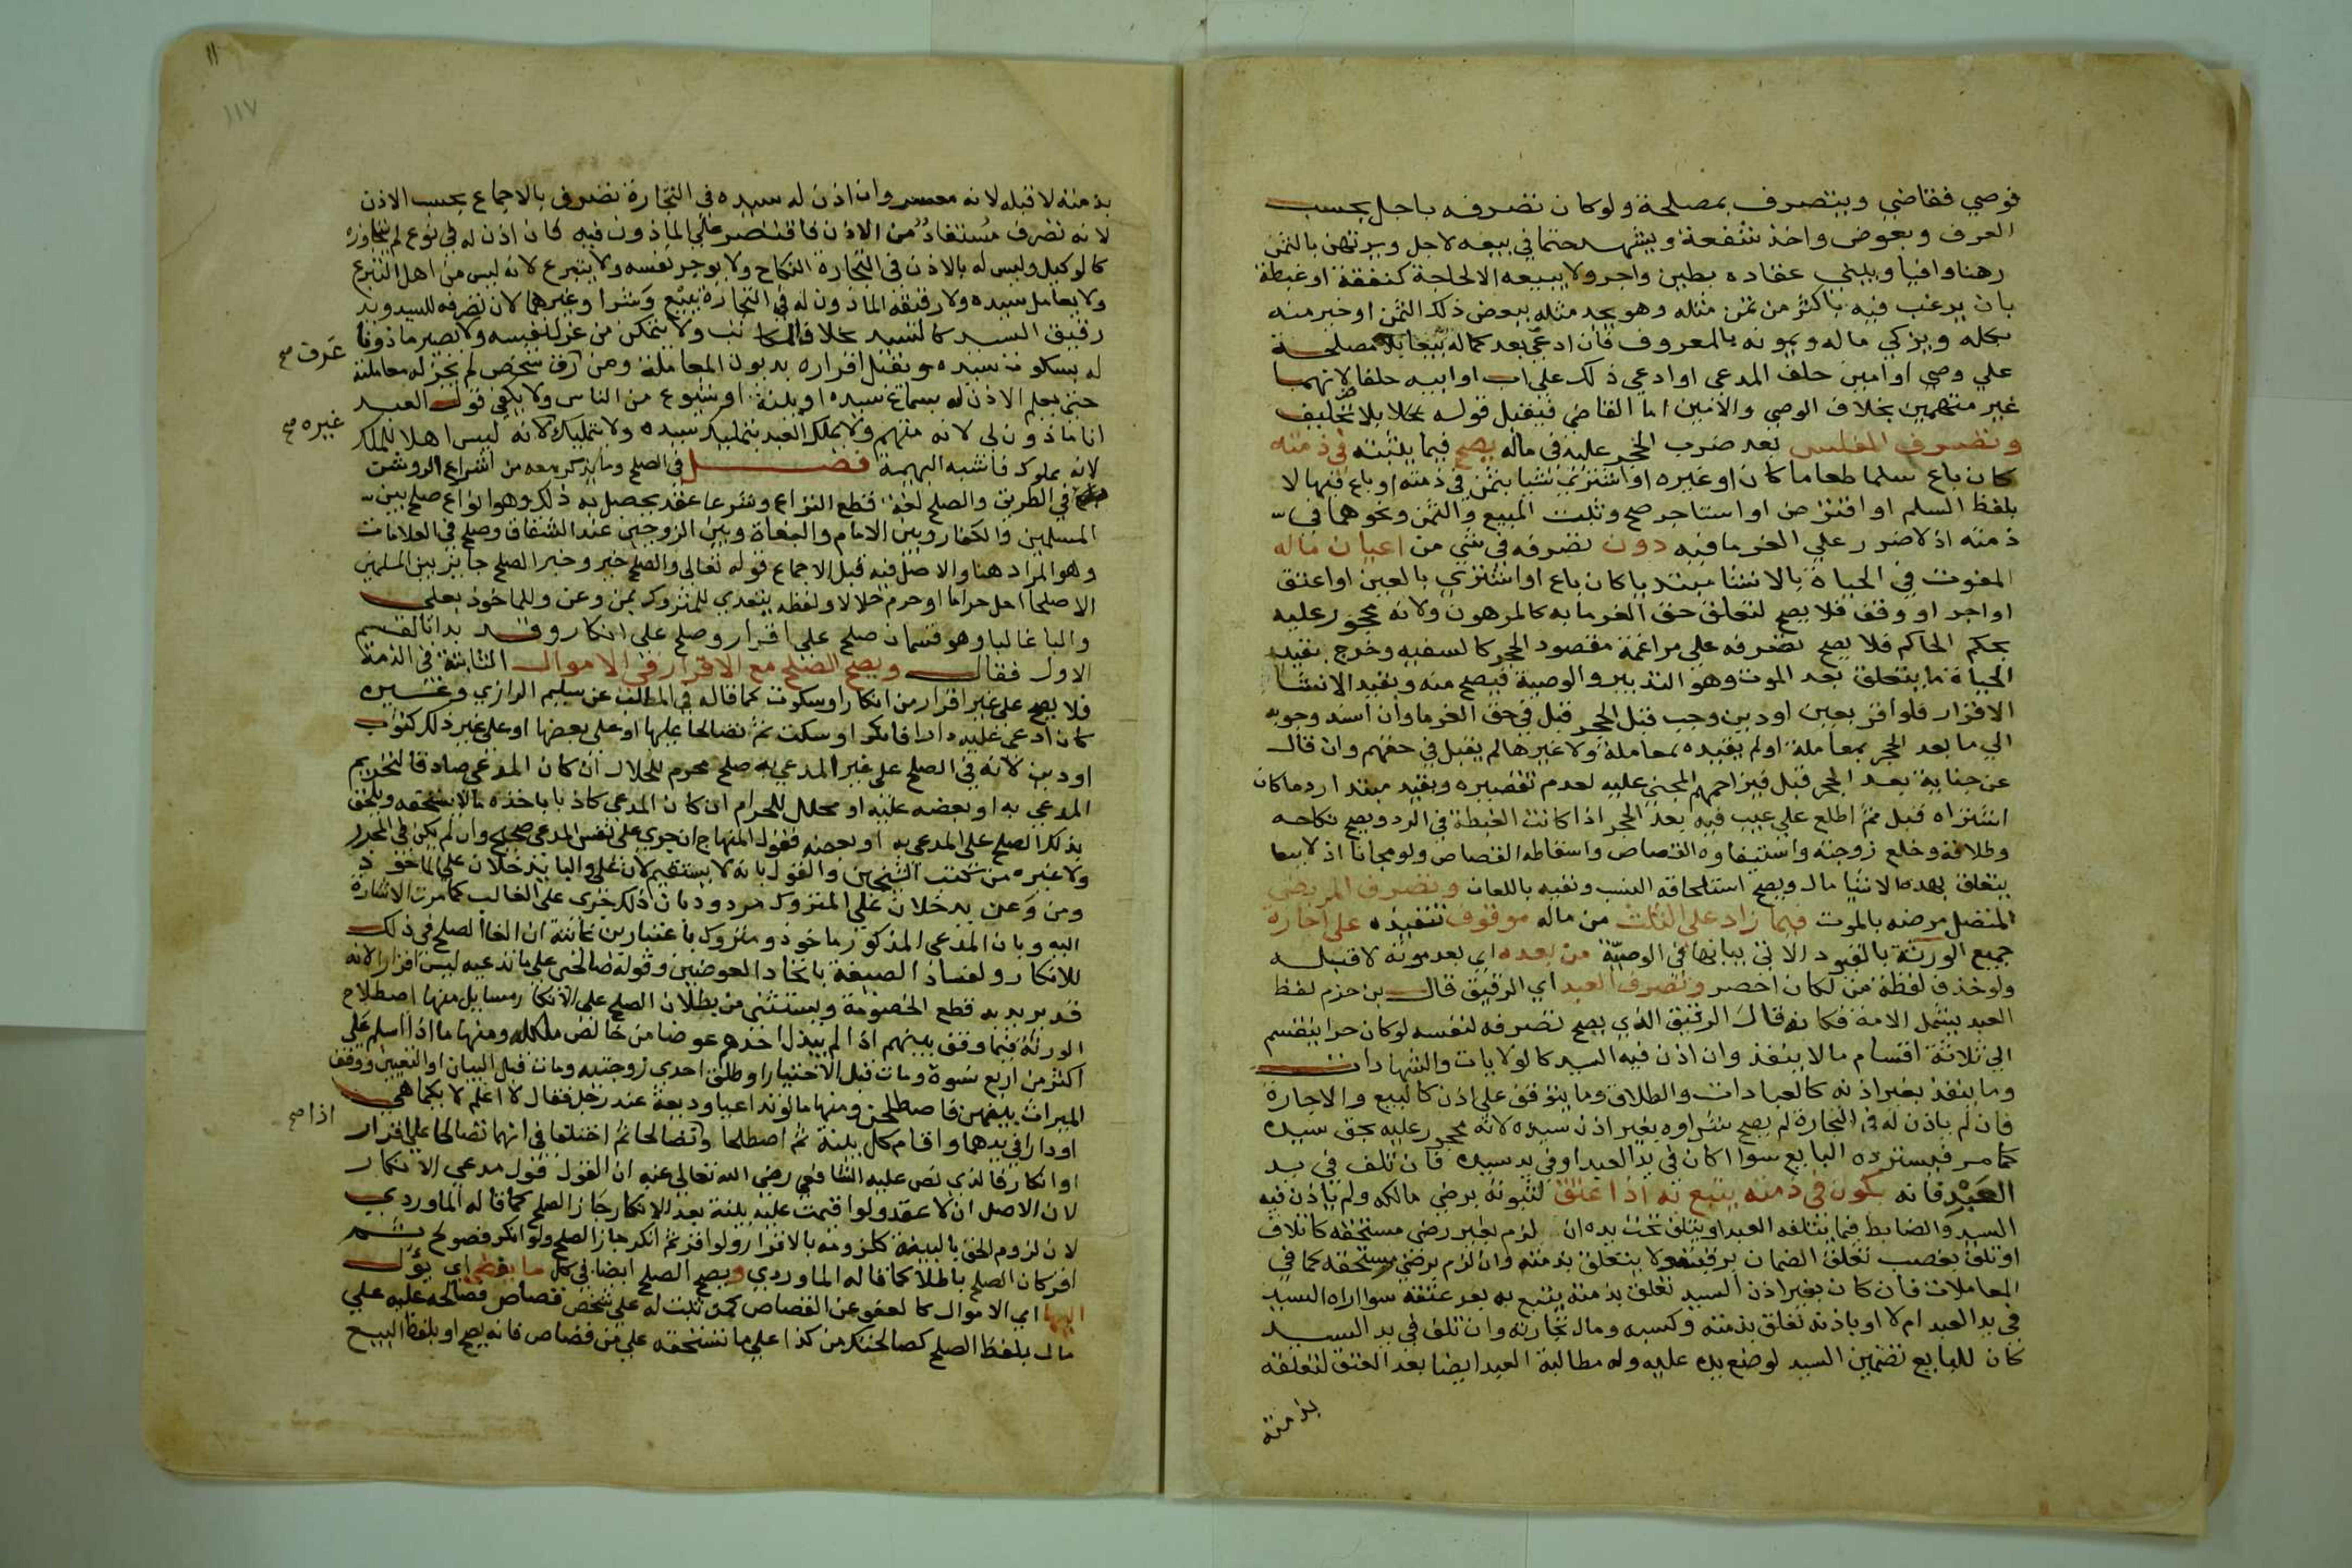 فوصي فقاضي ويتصرف بمصلحة ولو كان تصرفه باجل بحسب
العرف وبعوض واخذ شفعة ويشهد حتما في بيعه لاجل ويرتهن بالثمن
رهنا وافيا ويبني عقاده بطين واجر ولا يبيعه الا لحاجة كنفقة او غبطة
بان يرغب فيه باكثر من ثمن مثله وهو يجد مثله ببعض ذلك الثمن او خير منه
بكله ويزكي ماله ويمونه بالمعروف فان ادعي بعد كماله بيعا بلا مصلحة
علي وصي او امين حلف المدعي او ادعي ذلك علي اب او ابيه حلفا لانهما
غير متهمين بخلاف الوصي والامين اما القاضي فيقبل قوله بلا تحليف
وتصرف المفلس بعد ضرب الحجر عليه في ماله يصح فيما يثبته في ذمته
كان باع سلما طعاما كان او غيره او اشتري شيا بثمن في ذمته او باع فيها لا
بلفظ السلم او اقترض او استاجر صح وثبت المبيع والثمن ونحوهما في
ذمته اذ لا ضرر علي الغرما فيه دون تصرفه في شي من اعيان ماله
المفوت في الحياة بالانشا مبتديا كان باع او اشتري بالعين او اعتق
او اجر او وقف فلا يصح لتعلق حق الغرما به كالمرهون ولانه محجور عليه
بحكم الحاكم فلا يصح تصرفه علي مراغمة مقصود الحجر كالسفيه وخرج بقيد
الحياة ما يتعلق بعد الموت وهو التدبير والوصية فيصح منه وبقيد الانشا
الاقرار فلو اقر بعين او دين وجب قبل الحجر قبل في حق الغرما وان اسند وجوبه
الي ما بعد الحجر بمعاملة او لم يقيده بمعاملة ولا غيرها لم يقبل في حقهم وان قال
عن جناية بعد الحجر قبل فيزاحمهم المجني عليه لعدم تقصيره وبقيد مبتد ا رد ما كان
اشتراه قبل ثم اطلع علي عيب فيه بعد الحجر اذا كانت الغبطة في الرد ويصح نكاحه
وطلاقه وخلع زوجته واستيفاوه القصاص واسقاطه القصاص ولو مجانا اذ لا
يتعلق بهذه الاشيا مال ويصح استلحاقه النسب ونفيه باللعان وتصرف المريض
المتصل مرضه بالموت فيما زاد علي الثلث من ماله موقوف تنفيذه علي اجازة
جميع الورثة بالقيود الاتي بيانها في الوصية من بعده اي بعد موته لا قبله
ولو حذف لفظة من لكان اخصر وتصرف العبد اي الرقيق قال بن حزم لفظ
العبد يشمل الامة فكانه قال الرقيق الذي يصح تصرفه لنفسه لو كان حرا ينقسم
الي ثلاثة اقسام ما لا ينفذ وان اذن فيه السيد كالولايات والشهادات
وما ينفذ بغير اذنه كالعبادات والطلاق وما يتوقف علي اذن كالبيع والاجارة
فان لم ياذن له في التجارة لم يصح شراوه بغير اذن سيده لانه محجور عليه بحق سيده
كما مر فيسترده البايع سوا اكان في يد العبد او في يد سيده فان تلف في يد
العبد فانه يكون في ذمته يتبع به اذا عتق لثبوته برضي مالكه ولم ياذن فيه
السيد والضابط فيما يتلفه العبد او يتلف تحت يده ان لزم بغير رضي مستحقه كاتلاف
او تلف بغصب تعلق الضمان برقبته ولا يتعلق بذمته وان لزم برضي مستحقه كما في
المعاملات فان كان بغير اذن السيد تعلق بذمته يتبع به بعد عتقه سوا اراه السيد
في يد العبد ام لا او باذنه تعلق بذمته وكسبه ومال تجارته وان تلف في يد السيد
كان للبايع تضمين السيد لوضع يده عليه وله مطالبة العبد ايضا بعد العتق لتعلقه
بذمته
١١
١١٧
بذمته لا قبله لانه معسر وان اذن له سيده في التجارة تصرف بالاجماع بحسب الاذن
لانه تصرف مستفاد من الاذن فاقتصر علي الماذون فيه كان اذن له في نوع لم يتجاوزه
كالوكيل وليس له بالاذن في التجارة النكاح ولا يوجر نفسه ولا يتبرع لانه ليس من اهل التبرع
ولا يعامل سيده ولا رقيقه الماذون له في التجارة ببيع وشرا وغيرهما لان تصرفه للسيد ويد
رقيق السيد كالسيد بخلاف المكاتب ولا يتمكن من عزل نفسه ولا يصير ماذونا
له بسكوت سيده ويقبل اقراره بديون المعاملة ومن رق شخص لم يجز له معاملته
عرف صح
حتي يعلم الاذن له بسماع سيده او بينة او شيوع من الناس ولا يكفي قول العبد
انا ماذون لي لانه متهم ولا يملك العبد بتمليك سيده ولا بتمليك لانه ليس اهلا للملك
غيره صح
لانه مملوك فاشبه البهيمة فصل في الصلح وما يذكر معه من اشراع الروشن
في الطريق والصلح لغة قطع النزاع وشرعا عقد يحصل به ذلك وهو انواع صلح بين
المسلمين والكفار وبين الامام والبغاة وبين الزوجين عند الشقاق وصلح في المعاملات
وهو المراد هنا والاصل فيه قبل الاجماع قوله تعالي والصلح خير وخبر الصلح جايز بين المسلمين
الا صلحا احل حراما او حرم حلالا ولفظه يتعدي للمتروك بمن وعن وللماخوذ بعلي
والبا غالبا وهو قسمان صلح علي اقرار وصلح علي انكار وقد بدا بالقسم
الاول فقال ويصح الصلح مع الاقرار في الاموال الثابتة في الذمة
فلا يصح علي غير اقرار من انكار او سكوت كما قاله في المطلب عن سليم الرازي وغيره
كان ادعي عليه دارا فانكر او سكت ثم تصالحا عليها او علي بعضها او علي غير ذلك كثوب
او دين لانه في الصلح علي غير المدعي به صلح محرم للحلال ان كان المدعي صادقا لتحريم
المدعي به او بعضه عليه او محلل للحرام ان كان المدعي كاذبا باخذه ما لا يستحقه ويلحق
بذلك الصلح علي المدعي به او بعضه فقول المنهاج ان جري علي نفس المدعي صحيح وان لم يكن في المحرر
ولا غيره من كتب الشيخين والقول بانه لا يستقيم لان علي والبا يدخلان علي الماخوذ
ومن وعن يدخلان علي المتروك مردود بان ذلك جري علي الغالب كما مرت الاشارة
اليه وبان المدعي المذكور ماخوذ ومتروك باعتبارين غايته ان الغا الصلح في ذلك
للانكار ولفساد الصيغة باتحاد العوضين وقوله صالحني علي ما تدعيه ليس اقرارا لانه
قد يريد به قطع الخصومة ويستثني من بطلان الصلح علي الانكار مسايل منها اصطلاح
الورثة فيما وقف بينهم اذا لم يبذل احدهم عوضا من خالص ملكه ومنها ما اذا اسلم علي
اكثر من اربع نسوة ومات قبل الاختيار او طلق احدي زوجتيه ومات قبل البيان او التعيين ووقف
الميراث بينهن فاصطلحن ومنها ما لو تداعيا وديعة عند رجل فقال لا اعلم لايكما هي
او دارا في يدهما واقام كل بينة ثم اصطلحا واذا تصالحا ثم اختلفا في انهما تصالحا علي اقرار
اذا صح
او انكار فالذي نص عليه الشافعي رضي الله تعالي عنه ان القول قول مدعي الانكار
لان الاصل ان لا عقد ولو اقيمت عليه بينة بعد الانكار جاز الصلح كما قاله الماوردي
لان لزوم الحق بالبينة كلزومه بالاقرار ولو اقر ثم انكر جاز الصلح ولو انكر فصولح ثم
اقر كان الصلح باطلا كما قاله الماوردي ويصح الصلح ايضا في كل ما يفضي اي يؤل
اليها اي الاموال كالعفو عن القصاص كمن ثبت له علي شخص قصاص فصالحه عليه علي
مال بلفظ الصلح كصالحتك من كذا علي ما تستحقه علي من قصاص فانه يصح او بلفظ البيع